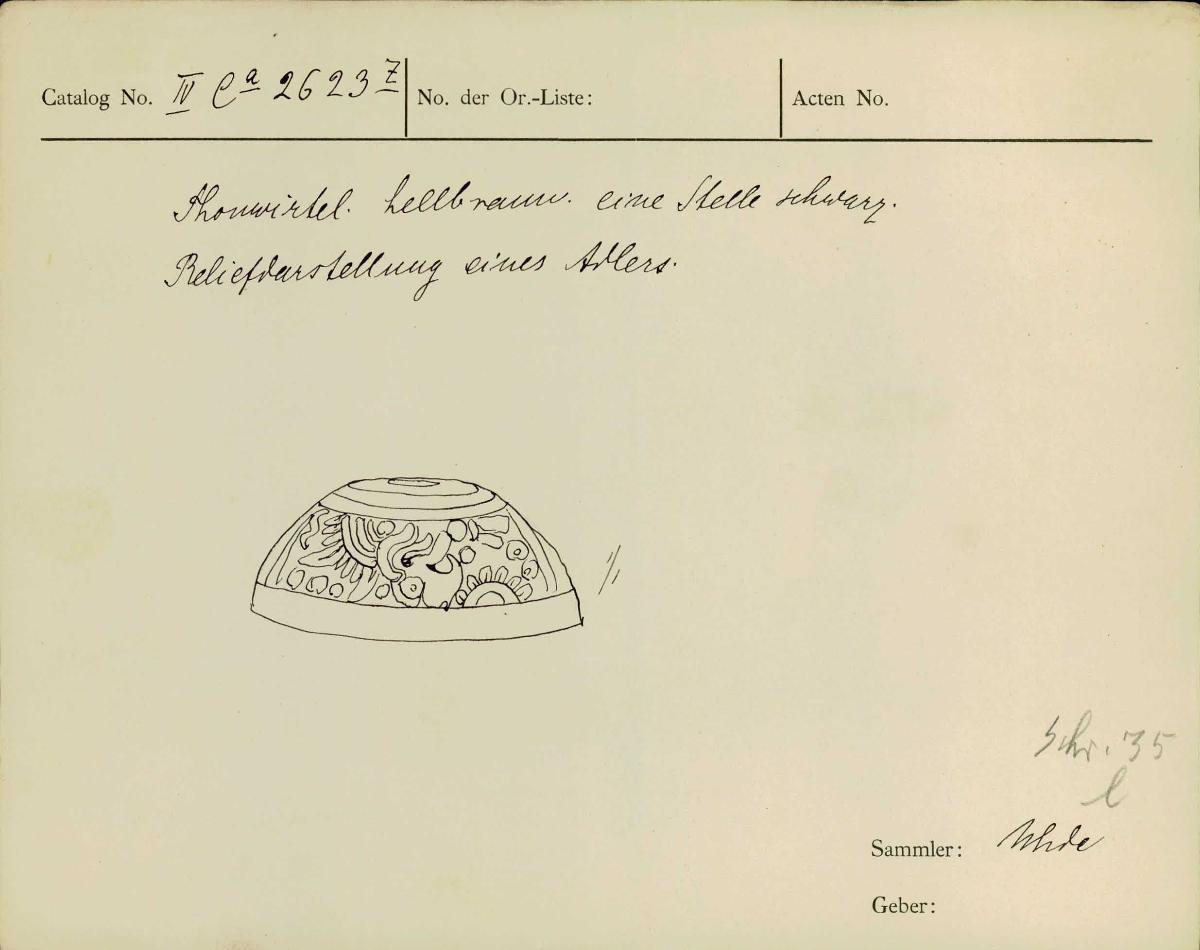 Catalog No. IV Ca 2623 z
No. der Or.-Liste:
Acten No.
Thonwirtel. hellbraun. eine Stelle schwarz.
Reliefdarstellung eines Adlers.
1/1
Schr. 35
l
Sammler: Uhde
Geber: